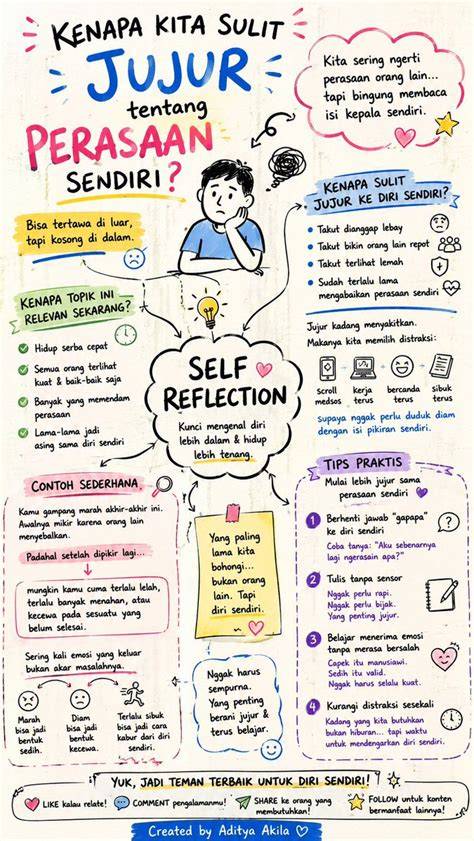 KENAPA KITA SULIT
JUJUR
tentang
PERASAAN
SENDIRI?
Kita sering ngerti
perasaan orang lain...
tapi bingung membaca
isi kepala sendiri.
Bisa tertawa di luar,
tapi kosong di dalam.
KENAPA SULIT
JUJUR KE DIRI SENDIRI?
• Takut dianggap lebay
• Takut bikin orang lain repot
• Takut terlihat lemah
• Sudah terlalu lama
mengabaikan perasaan sendiri
Jujur kadang menyakitkan.
Makanya kita memilih distraksi:
scroll
medsos
kerja
terus
bercanda
terus
sibuk
terus
supaya nggak perlu duduk diam
dengan isi pikiran sendiri.
KENAPA TOPIK INI
RELEVAN SEKARANG?
Hidup serba cepat
Semua orang terlihat
kuat & baik-baik saja
Banyak yang memendam
perasaan
Lama-lama jadi
asing sama diri sendiri
SELF
REFLECTION
Kunci mengenal diri
lebih dalam & hidup
lebih tenang.
CONTOH SEDERHANA
Kamu gampang marah akhir-akhir ini.
Awalnya mikir karena orang lain
menyebalkan.
Padahal setelah dipikir lagi...
mungkin kamu cuma terlalu lelah,
terlalu banyak menahan, atau
kecewa pada sesuatu yang
belum selesai.
Sering kali emosi yang keluar
bukan akar masalahnya.
Marah
bisa jadi
bentuk
sedih.
Diam
bisa jadi
bentuk
kecewa.
Terlalu sibuk
bisa jadi cara
kabur dari diri
sendiri.
Yang paling
lama kita
bohongi...
bukan orang
lain. Tapi
diri sendiri.
Nggak harus
sempurna.
Yang penting
berani jujur &
terus belajar.
TIPS PRAKTIS
Mulai lebih jujur sama
perasaan sendiri
1 Berhenti jawab "gapapa"
ke diri sendiri
Coba tanya: "Aku sebenarnya
lagi ngerasain apa?"
2 Tulis tanpa sensor
Nggak perlu rapi.
Nggak perlu bijak.
Yang penting jujur.
3 Belajar menerima emosi
tanpa merasa bersalah
Capek itu manusiawi.
Sedih itu valid.
Nggak harus selalu kuat.
4 Kurangi distraksi sesekali
Kadang yang kita butuhkan
bukan hiburan... tapi waktu
untuk mendengarkan diri sendiri.
YUK, JADI TEMAN TERBAIK UNTUK DIRI SENDIRI!
LIKE kalau relate!
COMMENT pengalamanmu!
SHARE ke orang yang
membutuhkan!
FOLLOW untuk konten
bermanfaat lainnya!
Created by Aditya Akila